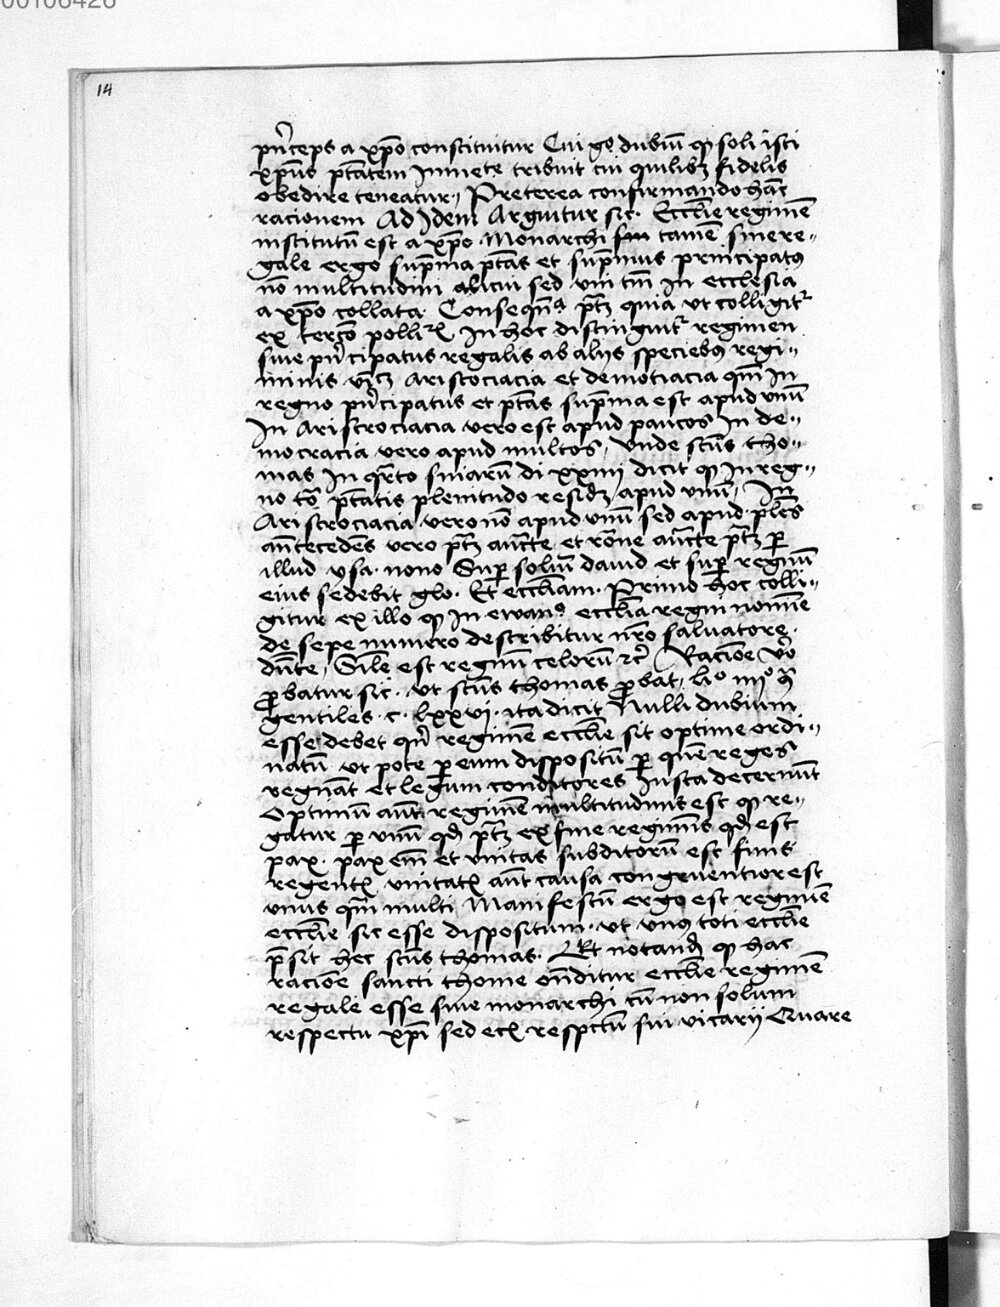 00106426
14
pͥnceps a xp̄o constituitur Cui gͦ dubiū qꝫ soli isti
xp̄us ptātem Inmete tribuit cui quilibꝫ fidelis
obedire teneatur Preterea confirmando hāc
racionem Ad Idem Arguitur sic. Eccl̄ie regimē
institutū est a xp̄o Monarchi tamē siue re-
gale ergo supͤma ptās et supͤmus principatus
nō multitudini alicui sed vni tm̄ In ecclesia
a xp̄o collata Conseqn̄a ptꝫ quia vt colligitͬ
ex tercͦo polliͭ In hoc distinguitͬ regimen
siue pͥncipatus regalis ab alijs speciebꝰ regi-
minis vꝫ Aristociacia et democracia qm̄ In
regno pͥncipatus et ptās supͤma est apud vnū
In Aristrociacia vero est apud paucos In de-
mocracia vero apud multos, vnde sctūs tho-
mas In qͣrto sniarū di xxiiij dicit qꝫ In reg-
no tō ptātis plenitudo residꝫ apud vnū, In
Aristrociacia vero nō apud vnū sed apud plr̄es
an̄tecedēs vero ptꝫ auct̄e et rōne auct̄e ptꝫ ꝑ
illud ysa. nono Suꝑ soliū dauid et suꝑ regnū
eius sedebit glo. Et eccl̄iam. Primo hoc colli-
gitur ex illo qꝫ In ewanͦ eccl̄ia regni nomīe
de sepe numero describitur nr̄o saluatore
dn̄te, Sil̄e est regnū celorū ⁊c̄ Racione vͦo
ꝓbatur sic. vt sctūs thomas ꝓbat, liͦ iiijͦ ꝯͣ
gentiles. c. lxxvj. ita dicit Nulli dubium
esse debet qn̄ regimē eccl̄ie sit optime ordi-
natū vt pote ꝑ eum dispositū ꝑ quē reges
regnāt et legum conditores Iusta decernūt
Optimū aūt regimē multitudinis est qꝫ re-
gatur ꝑ vnū qd̄ ptꝫ ex fine regimīs qd̄ est
pax. pax em̄ et vnitas subditorū est finis
regentꝭ vnitatꝭ aūt causa congruentior est
vnus qm̄ multi Manifestū ergo est regimē
eccl̄ie sic esse dispositum. vt vnꝰ toti eccl̄ie
p̄sit hec sctūs thomas. Et notand̄ qꝫ hac
racioē sancti thome on̄ditur eccl̄ie regimē
regale esse siue monarchi cū non solum
respectu xp̄i sed ecꝭ respectū sui vicarij Quare